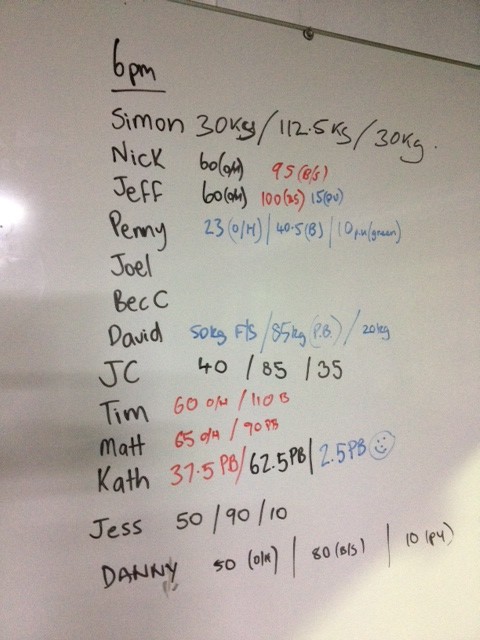 6pm
Simon 30kgs / 112.5kgs / 30kg.
Nick 60(O/H) 95(B/S)
Jeff 60(O/H) 100(BS) 15(PU)
Penny 23 (O/H) | 40.5(B) | 10 p.u (green)
Joel
Bec C
David 50kg F/S / 85kg (P.B.) / 20kg
JC 40 / 85 / 35
Tim 60 O/H / 110 B
Matt 65 O/H / 90 PB
Kath 37.5 PB / 62.5PB / 2.5PB
Jess 50 / 90 / 10
DANNY 50 (O/H) | 80 (B/S) | 10 (PU)